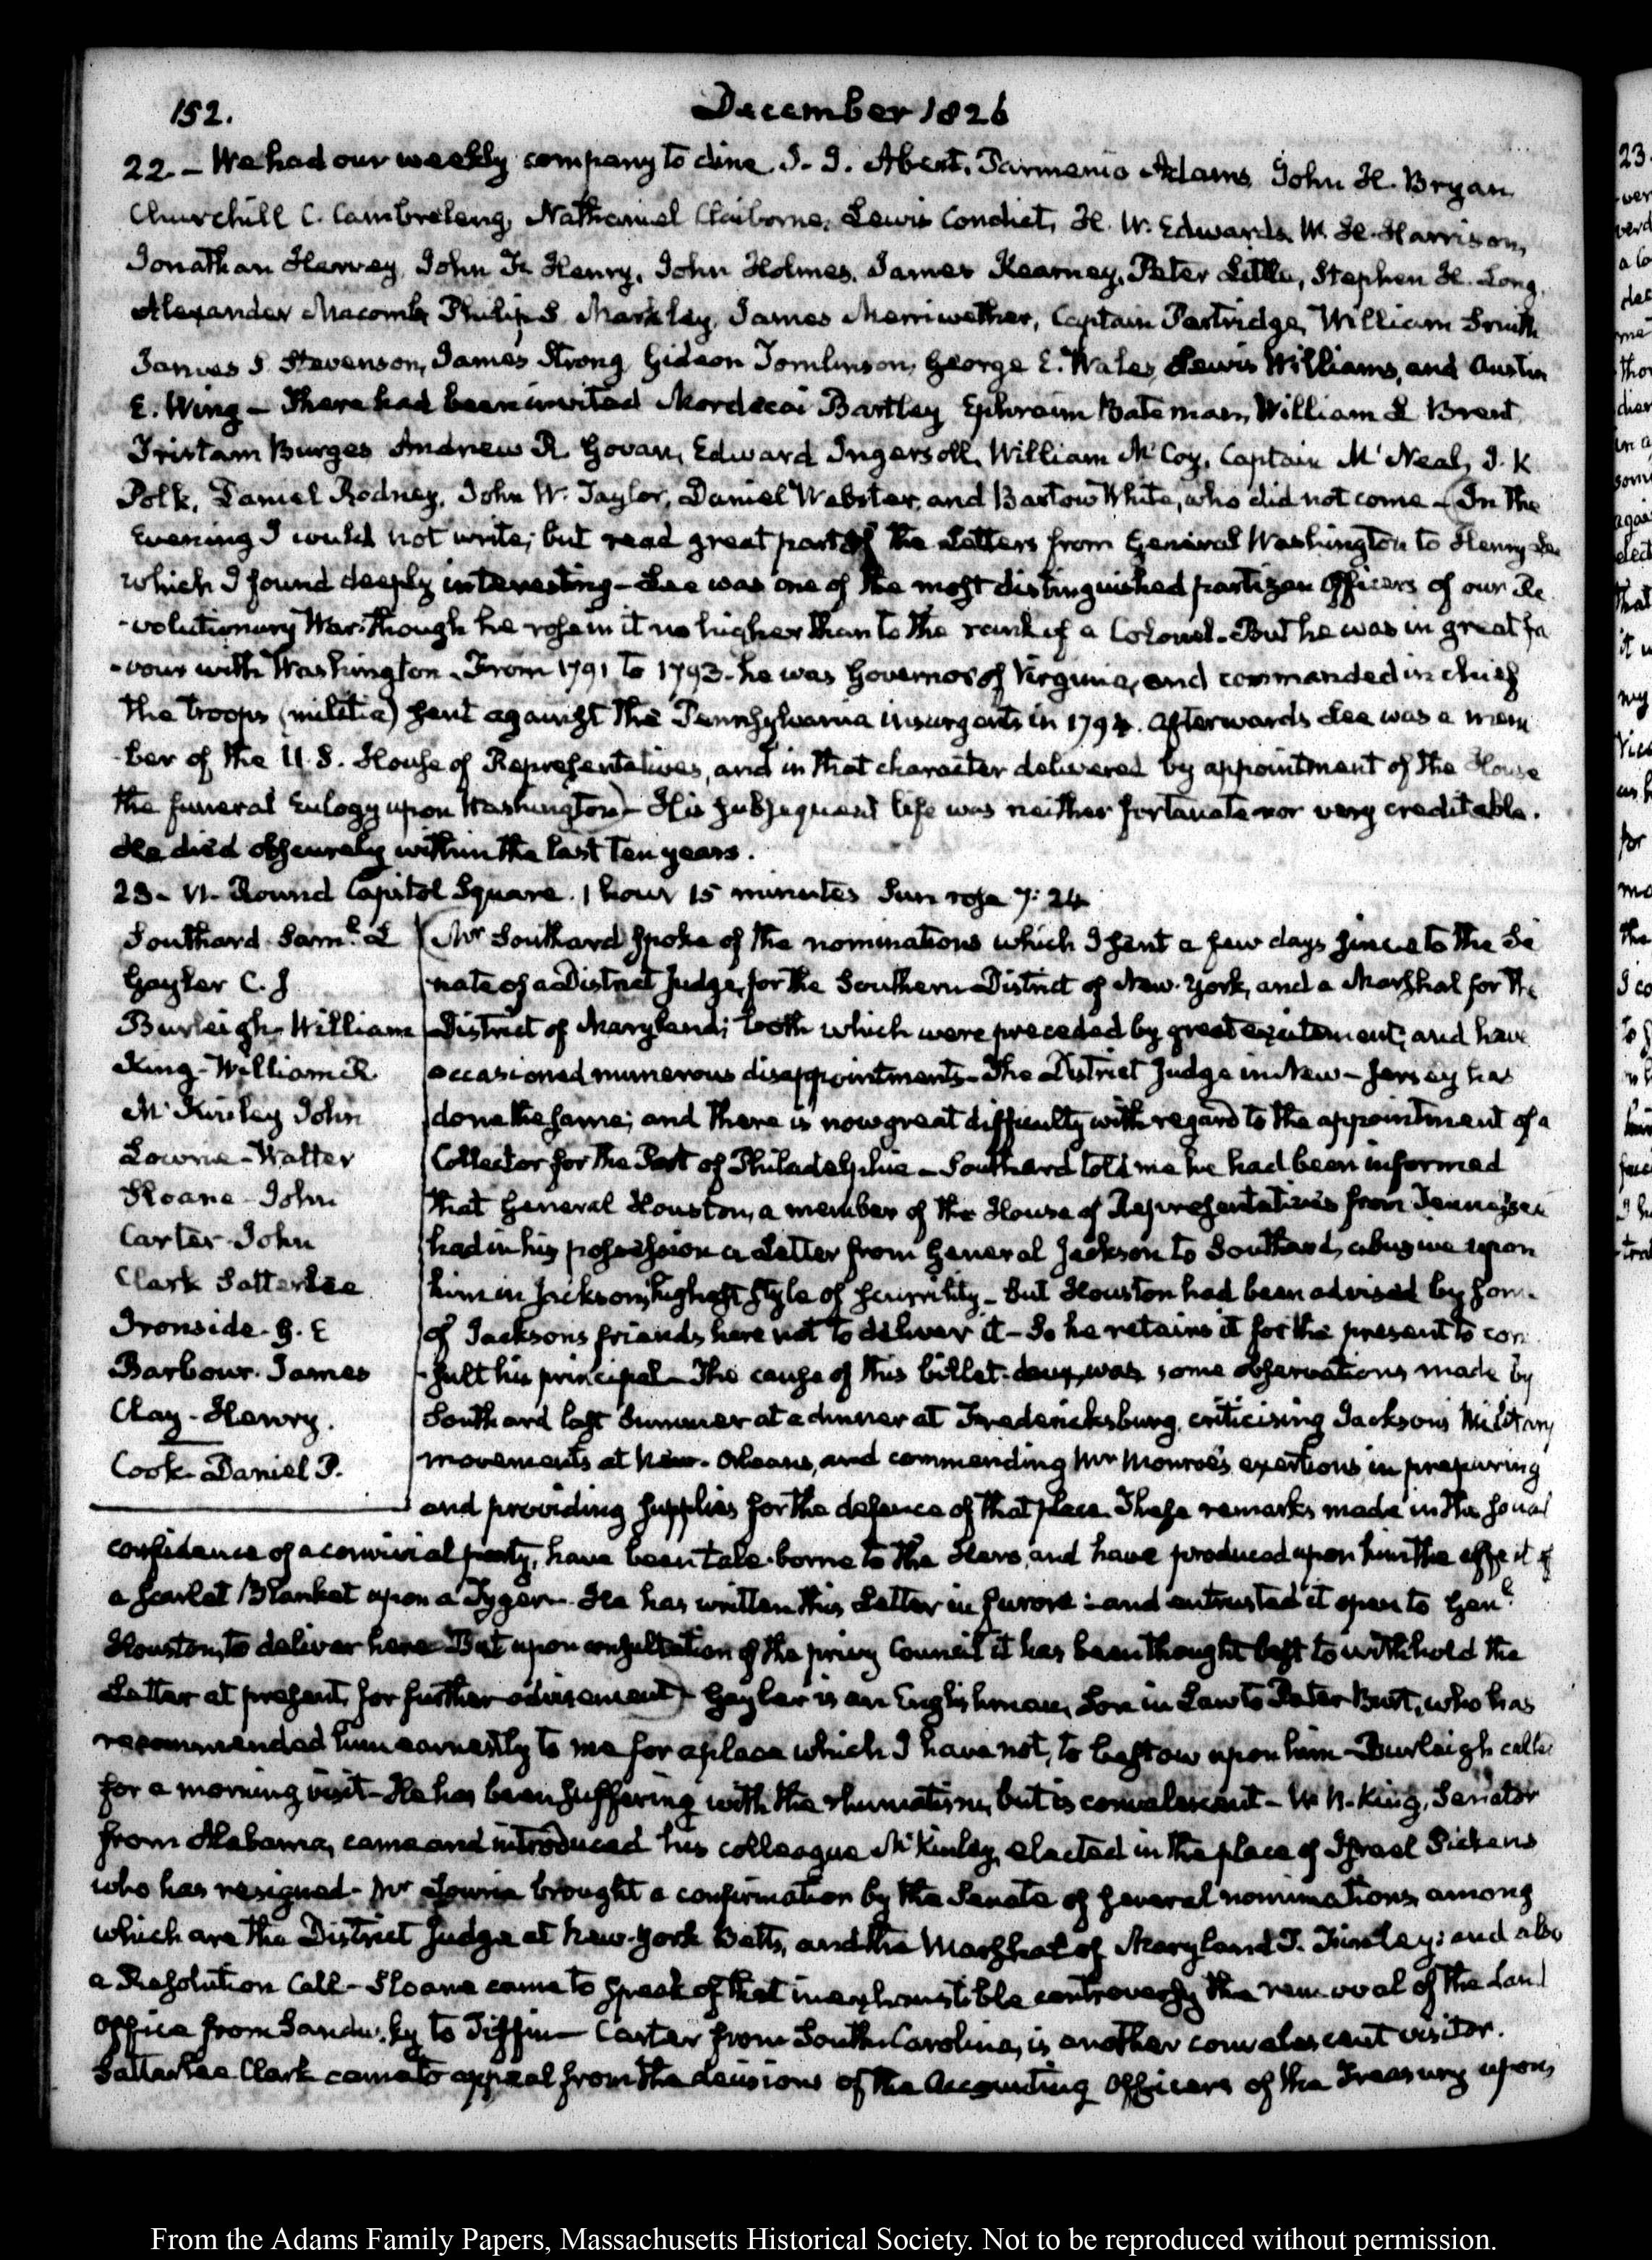 152. December 1826
22. – We had our weekly company to dine. J. J. Abert, Parmenio Adams, John H. Bryan
Churchill C. Cambreleng, Nathaniel Claiborne, Lewis Condict, H. W. Edwards, W. H. Harrison,
Jonathan Harvey, John F. Henry, John Holmes, James Kearney, Peter Little, Stephen H. Long,
Alexander Macomb, Philip S. Markley, James Merriwether, Captain Partridge, William Smith
James S. Stevenson, James Strong, Gideon Tomlinson, George E. Wales, Lewis Williams, and Austin
E. Wing – There had been invited Mordecai Bartley, Ephraim Bateman, William L Brent,
Tristam Burges, Andrew R. Govan, Edward Ingersoll, William McCoy, Captain McNeal, J. K
Polk, Daniel Rodney, John W. Taylor, Daniel Webster, and Bartow White, who did not come – (In the
Evening I could not write; but read great part of the Letters from General Washington to Henry Lee
which I found deeply interesting – Lee was one of the most distinguished partizan Officers of our Re
-volutionary War. though he rose in it no higher than to the rank of a Colonel. But he was in great fa
-vour with Washington. From 1791 to 1793. he was Governor of Virginia, and commanded in chief
the troops (militia) sent against the Pennsylvania insurgents in 1794. afterwards Lee was a mem
-ber of the U. S. House of Representatives, and in that character delivered by appointment of the House
the funeral Eulogy upon Washington) – His subsequent life was neither fortunate nor very creditable.
He died obscurely within the last ten years.
23. VI. Round Capitol Square. 1 hour 15 minutes Sun rose 7:24
Southard Saml. L (Mr Southard spoke of the nominations which I sent a few days since to the Se
Gayler C. J nate of a District Judge, for the Southern District of New-York, and a Marshal for the
Burleigh. William District of Maryland; both which were preceded by great excitement, and have
King – William R. occasioned numerous disappointments – The District Judge in New-Jersey has
McKinley John done the same; and there is now great difficulty with regard to the appointment of a
Lowrie – Walter Collector for the Port of Philadelphia – Southard told me he had been informed
Sloane – John that General Houston, a member of the House of Representatives from Tennessee
Carter John had in his possession a Letter from General Jackson to Southard, abusive upon
Clark Satterlee him in Jackson's highest style of scurrility – But Houston had been advised by some
Ironside. G. E of Jacksons friends here not to deliver it – So he retains it for the present to con
Barbour. James -sult his principal – The cause of this billet-doux, was some observations made by
Clay – Henry. Southard last Summer at a dinner at Fredericksburg, criticising Jackson's Military
Cook. Daniel P. movements at New-Orleans, and commending Mr Monroe's exertions in preparing
and providing supplies for the defence of that place. These remarks made in the social
confidence of a convivial party, have been tale-borne to the Hero, and have produced upon him the effect of
a scarlet Blanket upon a Tyger. He has written this Letter in furore: and entrusted it open to Genl.
Houston, to deliver here – But upon consultation of the privy Council it has been thought best to withhold the
Letter at present, for further advisement) – Gayler is an Englishman, Son in Law to Peter Burt, who has
recommended him earnestly to me for a place which I have not, to bestow upon him – Burleigh called
for a morning visit – He has been suffering with the rhumatism, but is convalescent – W. R. King, Senator
from Alabama, came and introduced his colleague McKinley, elected in the place of Israel Pickens
who has resigned – Mr Lowrie brought a confirmation by the Senate of several nominations, among
which are the District Judge at New-York Betts, and the Marshal of Maryland T. Finley; and also
a Resolution Call – Sloane came to speak of that inexhaustible controversy the removal of the Land
Office from Sandusky to Tiffin – Carter from South-Carolina, is another convalescent visitor.
Satterlee Clark came to appeal from the decisions of the Accounting Officers of the Treasury upon,
From the Adams Family Papers, Massachusetts Historical Society. Not to be reproduced without permission.